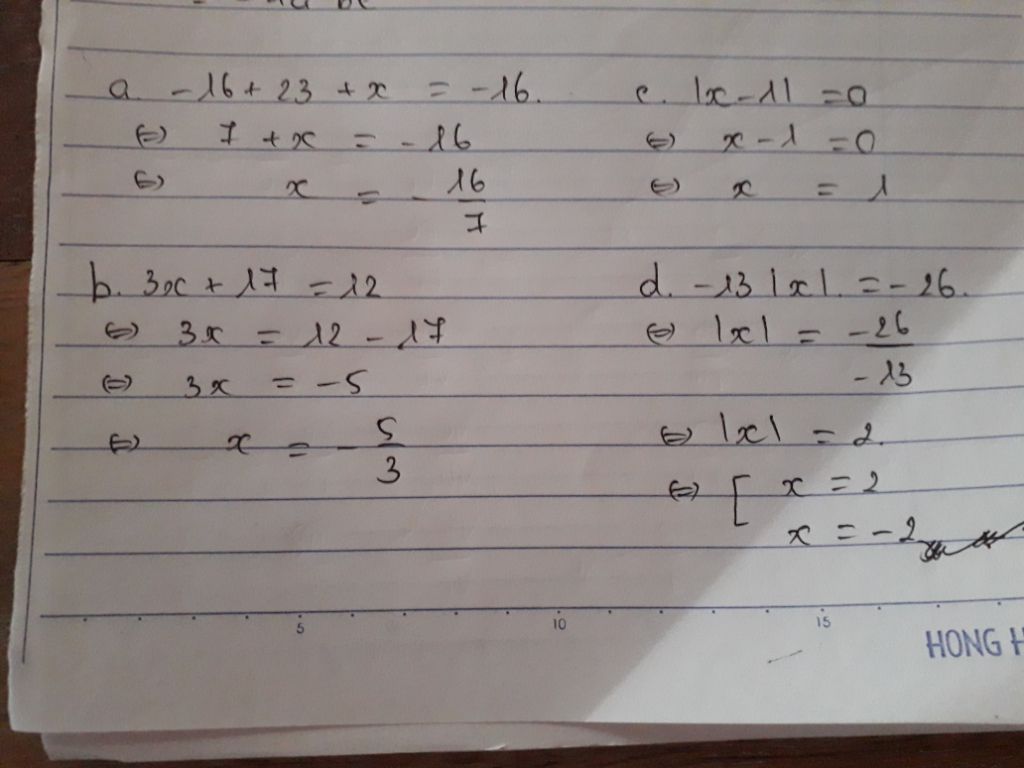 a. -16 + 23 + x = -16.
⇔ 7 + x = -16
⇔ x = - 16/7
b. 3x + 17 = 12
⇔ 3x = 12 - 17
⇔ 3x = -5
⇔ x = - 5/3
c. |x - 1| = 0
⇔ x - 1 = 0
⇔ x = 1
d. -13 |x|. = -26.
⇔ |x| = -26/-13
⇔ |x| = 2.
⇔ [ x = 2
x = -2
5 10 15
HONG H